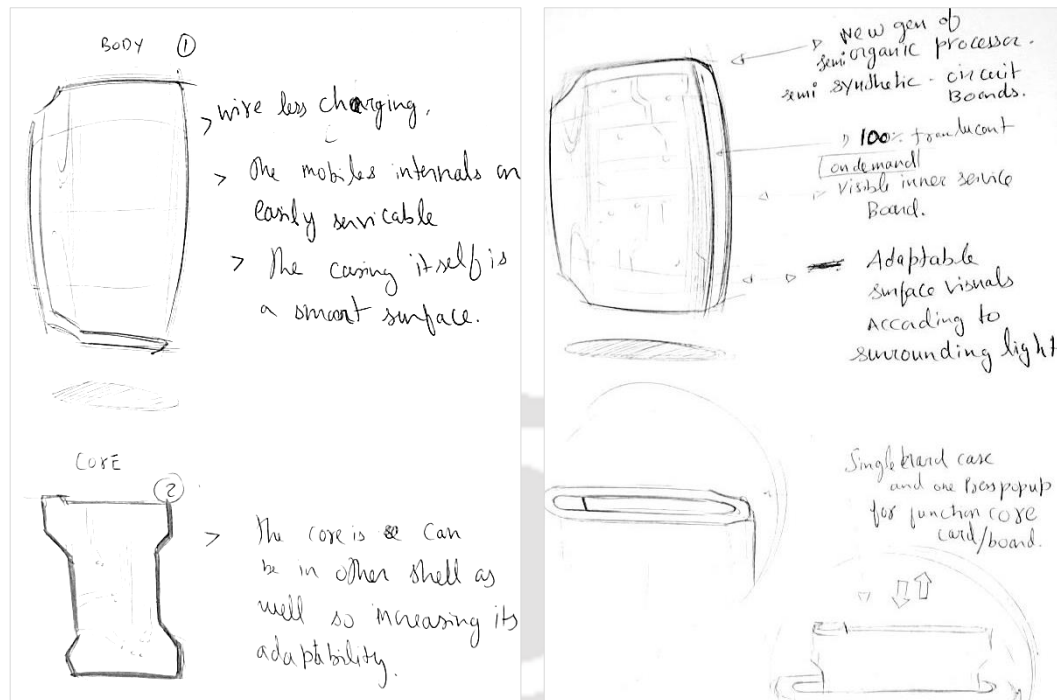 BODY ①
> wire less charging.
> The mobiles internals an
easily servicable
> The casing itself is
a smart surface.
CORE
②
> The core is can
be in other shell as
well so increasing its
adaptability.
New gen of
semi organic processor.
semi synthetic - circuit
Boards.
100% translucant
ondemand
Visible inner service
Board.
Adaptable
surface visuals
According to
surrounding light
Single hard case
and one Press popup
for function core
card/board.